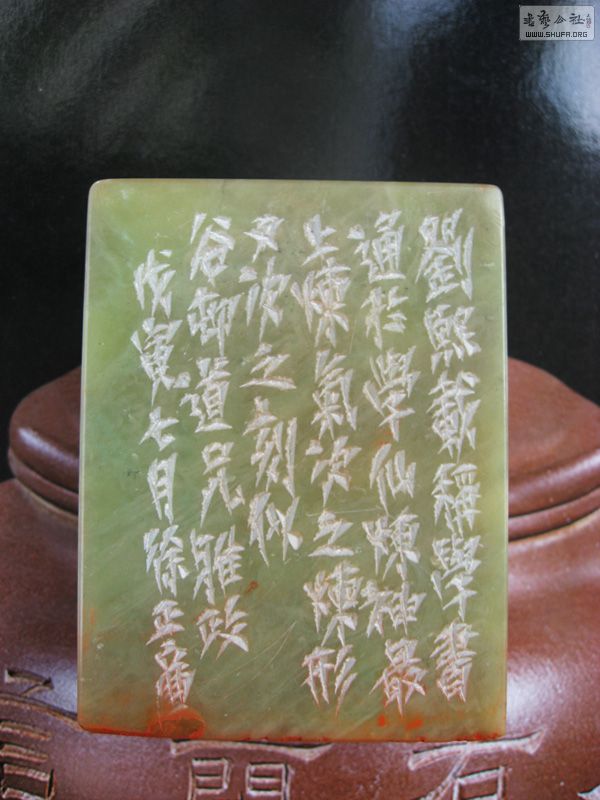 劉熙載稱學書
通於學仙煉神最
上煉氣次之煉形
又次之刻似
谷道兄雅政
戊寅七月徐正廉
书藝公社
WWW.SHUFA.ORG
石門